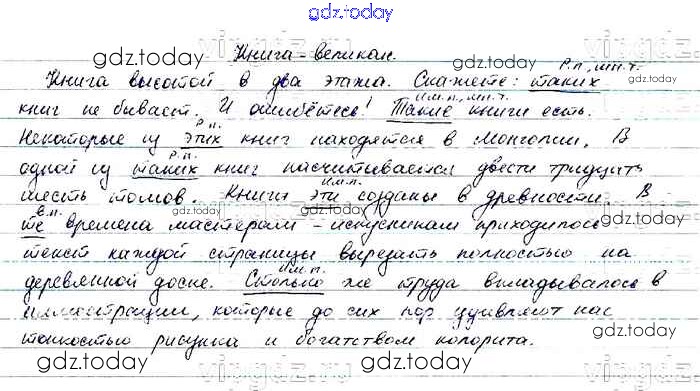 gdz.today
Книга-великан.
Р.п., мн.ч.
Книга высотой в два этажа. Скажете: таких
Им.п., мн.ч.
книг не бывает. И ошибётесь! Такие книги есть.
Р.п.
Некоторые из этих книг находятся в Монголии. В
Р.п.
одной из таких книг насчитывается двести тридцать
Им.п.
шесть томов. Книги эти созданы в древности. В
В.п.
те времена мастерам-искусникам приходилось
текст каждой страницы вырезать полностью на
Им.п.
деревянной доске. Столько же труда вкладывалось в
иллюстрации, которые до сих пор удивляют нас
тонкостью рисунка и богатством колорита.
gdz.today